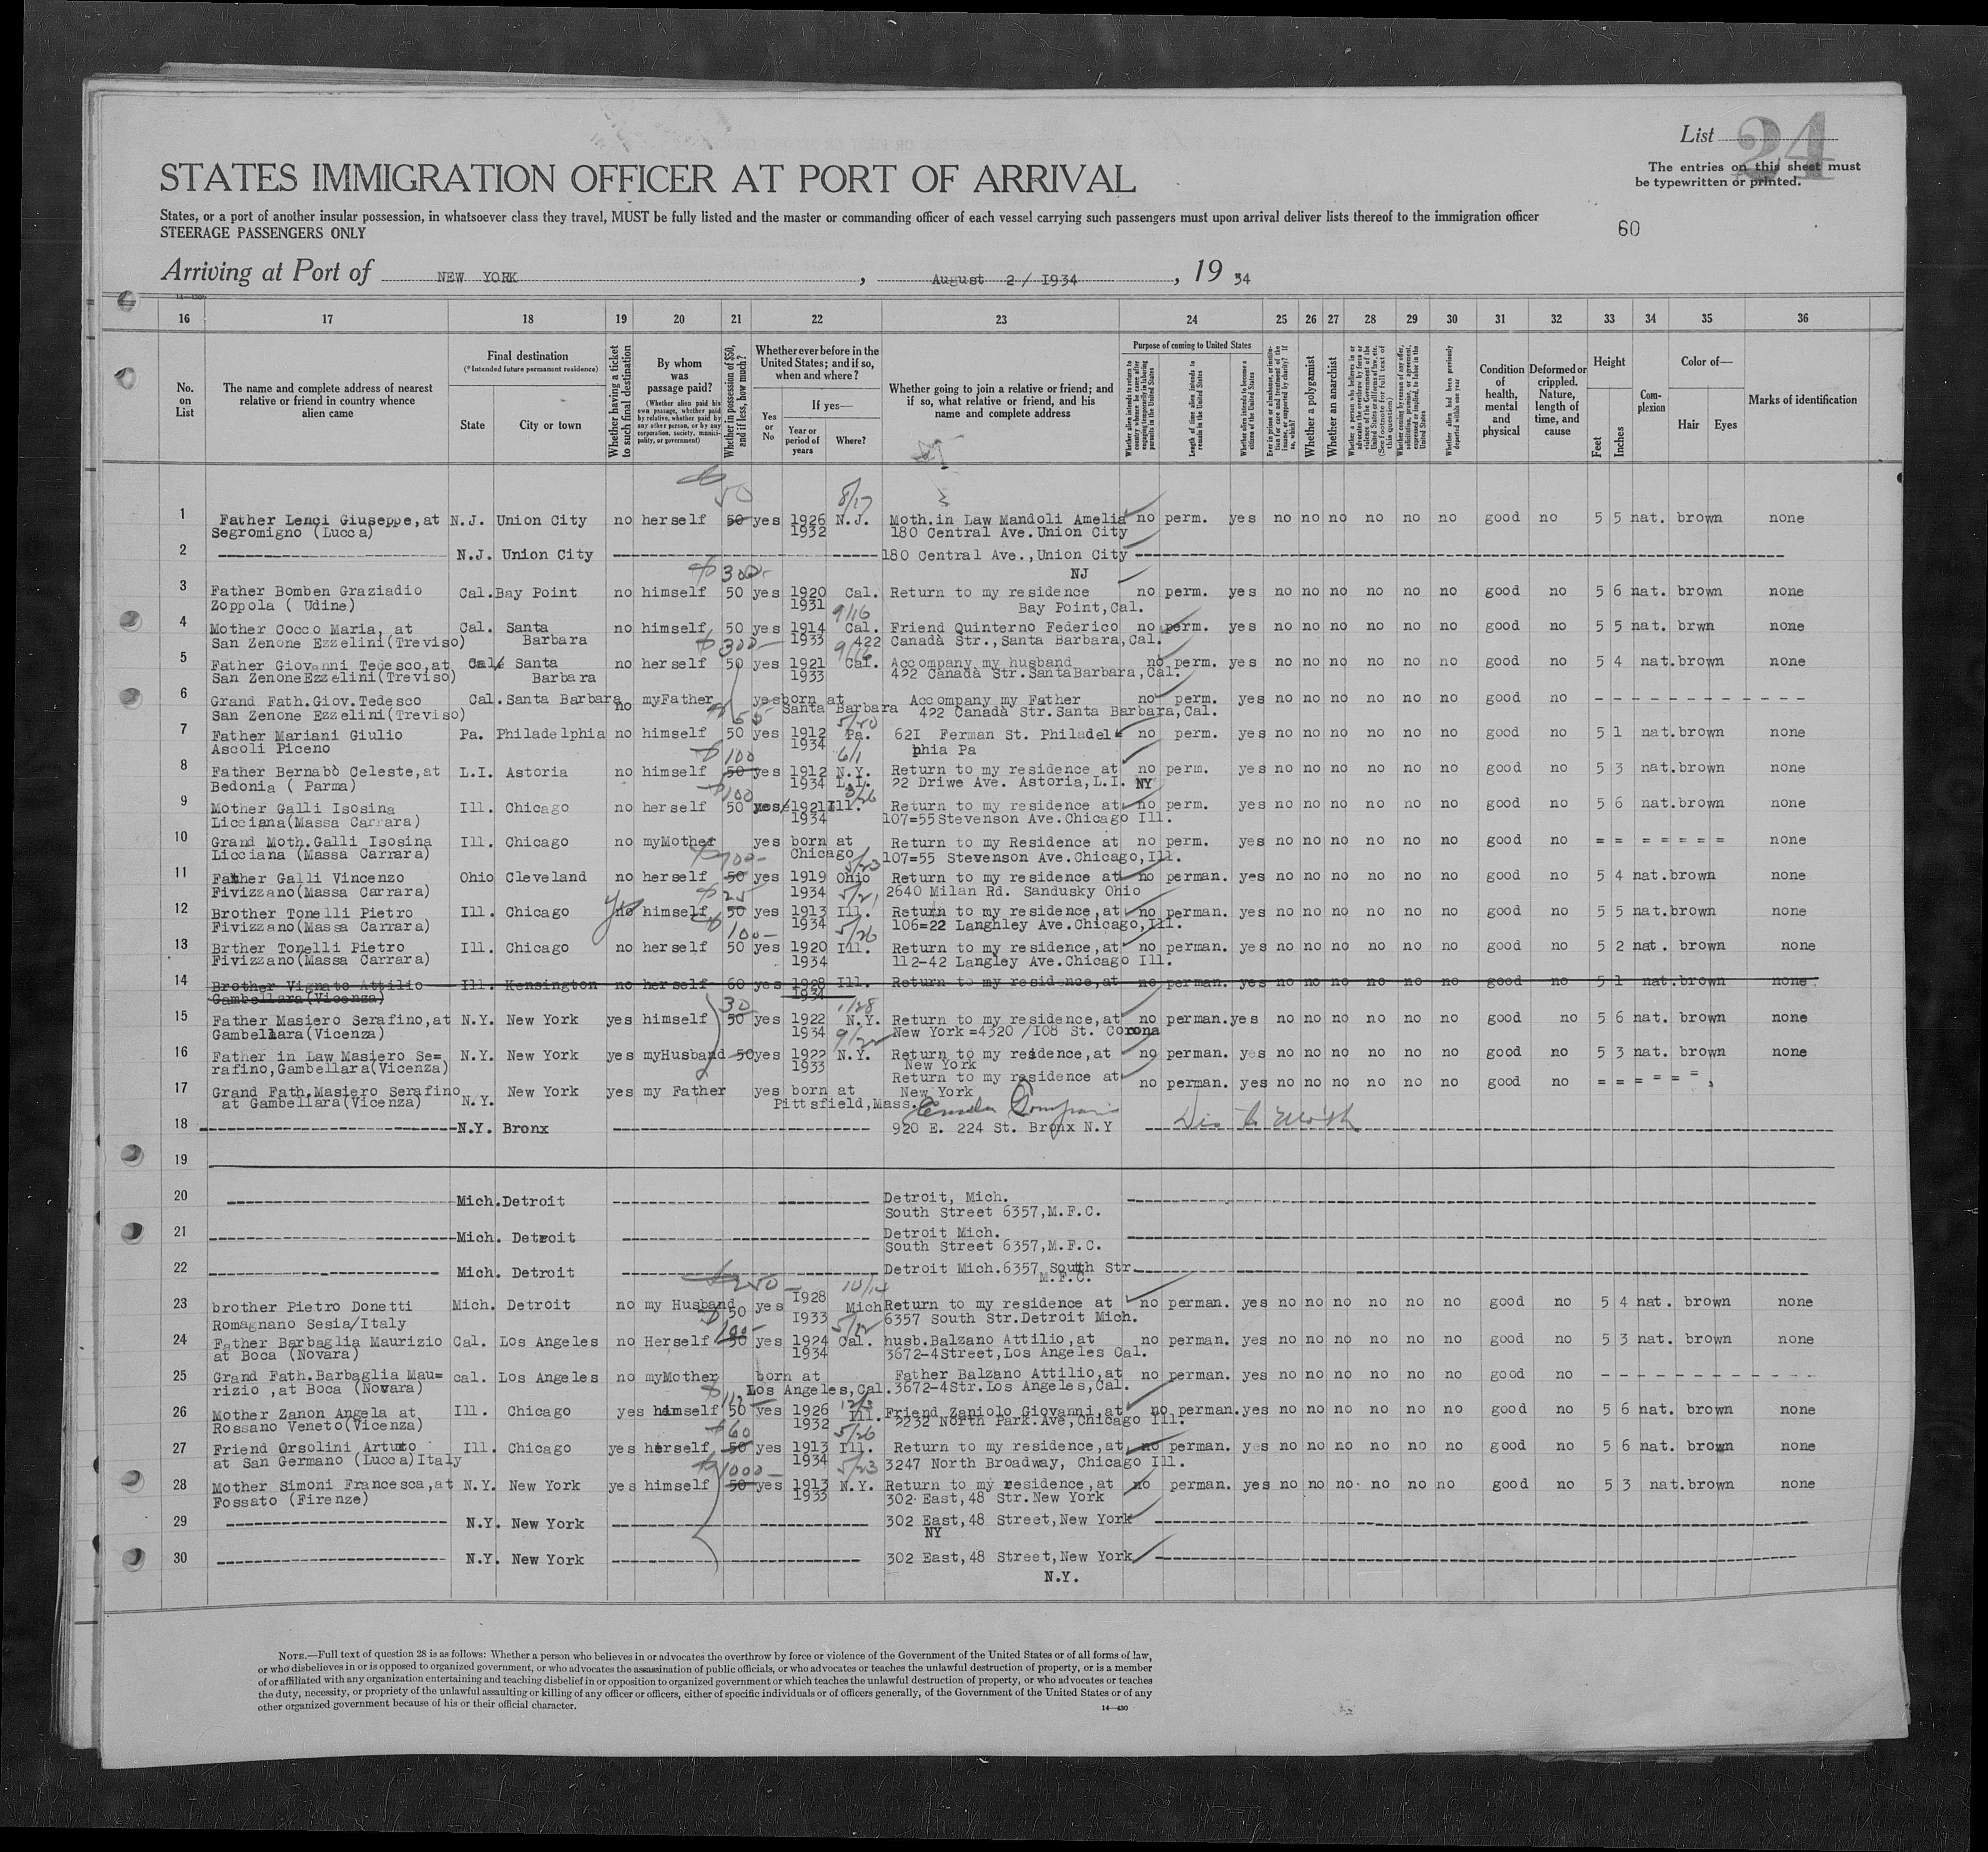 List 24
The entries on this sheet must
be typewritten or printed.
STATES IMMIGRATION OFFICER AT PORT OF ARRIVAL
States, or a port of another insular possession, in whatsoever class they travel, MUST be fully listed and the master or commanding officer of each vessel carrying such passengers must upon arrival deliver lists thereof to the immigration officer
STEERAGE PASSENGERS ONLY
60
Arriving at Port of NEW YORK, August 2/ 1934, 19 34
16 17 18 19 20 21 22 23 24 25 26 27 28 29 30 31 32 33 34 35 36
No. on List
The name and complete address of nearest relative or friend in country whence alien came
Final destination
(*Intended future permanent residence)
State City or town
Whether having a ticket to such final destination
By whom was passage paid?
(Whether alien paid his own passage, whether paid by relative, whether paid by any other person, or by any corporation, society, municipality, or government)
Whether in possession of $50, and if less, how much?
Whether ever before in the United States; and if so, when and where?
Yes or No
If yes—
Year or period of years Where?
Whether going to join a relative or friend; and if so, what relative or friend, and his name and complete address
Purpose of coming to United States
Length of time alien intends to remain in the United States
Whether alien intends to become a citizen of the United States
Whether a polygamist
Whether an anarchist
Whether alien had been previously deported within one year
Condition of health, mental and physical
Deformed or crippled. Nature, length of time, and cause
Height
Feet Inches
Complexion
Color of—
Hair Eyes
Marks of identification
50 8/17
1 Father Lenci Giuseppe, at N.J. Union City no herself 50 yes 1926 N.J. Moth.in Law Mandoli Amelia no perm. yes no no no no no no good no 5 5 nat. brown none
Segromigno (Lucca) 1932 180 Central Ave.Union City
2 N.J. Union City 180 Central Ave.,Union City
NJ
300-
3 Father Bomben Graziadio Cal.Bay Point no himself 50 yes 1920 Cal. Return to my residence no perm. yes no no no no no no good no 5 6 nat. brown none
Zoppola ( Udine) 1931 Bay Point,Cal.
9/16
4 Mother Cocco Maria, at Cal. Santa no himself 50 yes 1914 Cal. Friend Quinterno Federico no perm. yes no no no no no no good no 5 5 nat. brwn none
San Zenone Ezzelini(Treviso) Barbara 1933 422 Canadà Str.,Santa Barbara,Cal.
$300- 9/16
5 Father Giovanni Tedesco,at Cal. Santa no herself 50 yes 1921 Cal. Accompany my husband no perm. yes no no no no no no good no 5 4 nat.brown none
San ZenoneEzzelini(Treviso) Barbara 1933 422 Canadà Str.SantaBarbara,Cal.
6 Grand Fath.Giov.Tedesco Cal.Santa Barbara no myFather yesborn at Accompany my Father no perm. yes no no no no no no good no
San Zenone Ezzelini(Treviso) Santa Barbara 422 Canadà Str.Santa Barbara,Cal.
7 Father Mariani Giulio Pa. Philadelphia no himself 50 yes 1912 Pa. 621 Ferman St. Philadel no perm. yes no no no no no no good no 5 1 nat.brown none
Ascoli Piceno 1934 phia Pa
$100 6/1
8 Father Bernabò Celeste,at L.I. Astoria no himself 50 yes 1912 N.Y. Return to my residence at no perm. yes no no no no no no good no 5 3 nat.brown none
Bedonia ( Parma) 1934 L.I. 22 Driwe Ave. Astoria,L.I. NY
$100
9 Mother Galli Isosina Ill. Chicago no herself 50 yes 1921 Ill. Return to my residence at no perm. yes no no no no no no good no 5 6 nat.brown none
Licciana(Massa Carrara) 1934 107=55Stevenson Ave.Chicago Ill.
10 Grand Moth.Galli Isosina Ill. Chicago no myMother yes born at Return to my Residence at no perm. yes no no no no no no good no = = = = = = = none
Licciana (Massa Carrara) Chicago 107=55 Stevenson Ave.Chicago,Ill.
100- 5/23
11 Father Galli Vincenzo Ohio Cleveland no herself 50 yes 1919 Ohio Return to my residence at no perman. yes no no no no no no good no 5 4 nat.brown none
Fivizzano(Massa Carrara) 1934 2640 Milan Rd. Sandusky Ohio
$25 5/21
12 Brother Tonelli Pietro Ill. Chicago yes no himself 50 yes 1913 Ill. Return to my residence,at no perman. yes no no no no no no good no 5 5 nat.brown none
Fivizzano(Massa Carrara) 1934 106=22 Langhley Ave.Chicago,Ill.
100- 5/26
13 Brther Tonelli Pietro Ill. Chicago no herself 50 yes 1920 Ill. Return to my residence,at no perman. yes no no no no no no good no 5 2 nat. brown none
Fivizzano(Massa Carrara) 1934 112-42 Langley Ave.Chicago Ill.
14 Brother Vignato Attilio Ill. Kensington no herself 60 yes 1928 Ill. Return to my residence,at no perman. yes no no no no no no good no 5 1 nat.brown none
Gambellara(Vicenza) 1934
30 1/28
15 Father Masiero Serafino,at N.Y. New York yes himself 50 yes 1922 N.Y. Return to my residence,at no perman.yes no no no no no no good no 5 6 nat. brown none
Gambellara(Vicenza) 1934 New York =4320 /108 St. Corona
16 Father in Law Masiero Se= N.Y. New York yes myHusband 50yes 1922 N.Y. Return to my residence,at no perman. yes no no no no no no good no 5 3 nat. brown none
rafino,Gambellara(Vicenza) 1933 New York
17 Grand Fath.Masiero Serafino N.Y. New York yes my Father yes born at Return to my residence at no perman. yes no no no no no no good no
at Gambellara(Vicenza) Pittsfield,Mass. New York
18 N.Y. Bronx 920 E. 224 St. Bronx N.Y
19
20 Mich.Detroit Detroit, Mich.
South Street 6357,M.F.C.
21 Mich. Detroit Detroit Mich.
South Street 6357,M.F.C.
22 Mich. Detroit Detroit Mich.6357 South Str.
M.F.C.
$250- 10/14
23 brother Pietro Donetti Mich. Detroit no my Husband 50 yes 1928 Mich Return to my residence at no perman. yes no no no no no no good no 5 4 nat. brown none
Romagnano Sesia/Italy 1933 6357 South Str.Detroit Mich.
100-
24 Father Barbaglia Maurizio Cal. Los Angeles no Herself 50 yes 1924 Cal. husb.Balzano Attilio,at no perman. yes no no no no no no good no 5 3 nat. brown none
at Boca (Novara) 1934 3672-4Street,Los Angeles Cal.
25 Grand Fath.Barbaglia Mau= cal. Los Angeles no myMother born at Father Balzano Attilio,at no perman. yes no no no no no no good no
rizio ,at Boca (Novara) Los Angeles,Cal. 3672-4Str.Los Angeles,Cal.
26 Mother Zanon Angela at Ill. Chicago yes himself 50 yes 1926 Ill. Friend Zeniolo Giovanni,at no perman.yes no no no no no no good no 5 6 nat. brown none
Rossano Veneto(Vicenza) 1932 2232 North Park.Ave,Chicago Ill.
$60 5/26
27 Friend Orsolini Arturo Ill. Chicago yes herself 50 yes 1913 Ill. Return to my residence,at no perman. yes no no no no no no good no 5 6 nat. brown none
at San Germano (Lucca)Italy 1934 3247 North Broadway, Chicago Ill.
$1000- 5/23
28 Mother Simoni Francesca,at N.Y. New York yes himself 50 yes 1913 N.Y. Return to my residence,at no perman. yes no no no no no no good no 5 3 nat.brown none
Fossato (Firenze) 1933 302 East,48 Str.New York
29 N.Y. New York 302 East,48 Street,New York
NY
30 N.Y. New York 302 East,48 Street,New York
N.Y.
NOTE.—Full text of question 28 is as follows: Whether a person who believes in or advocates the overthrow by force or violence of the Government of the United States or of all forms of law,
or who disbelieves in or is opposed to organized government, or who advocates the assassination of public officials, or who advocates or teaches the unlawful destruction of property, or is a member
of or affiliated with any organization entertaining and teaching disbelief in or opposition to organized government or which teaches the unlawful destruction of property, or who advocates or teaches
the duty, necessity, or propriety of the unlawful assaulting or killing of any officer or officers, either of specific individuals or of officers generally, of the Government of the United States or of any
other organized government because of his or their official character.
14—430